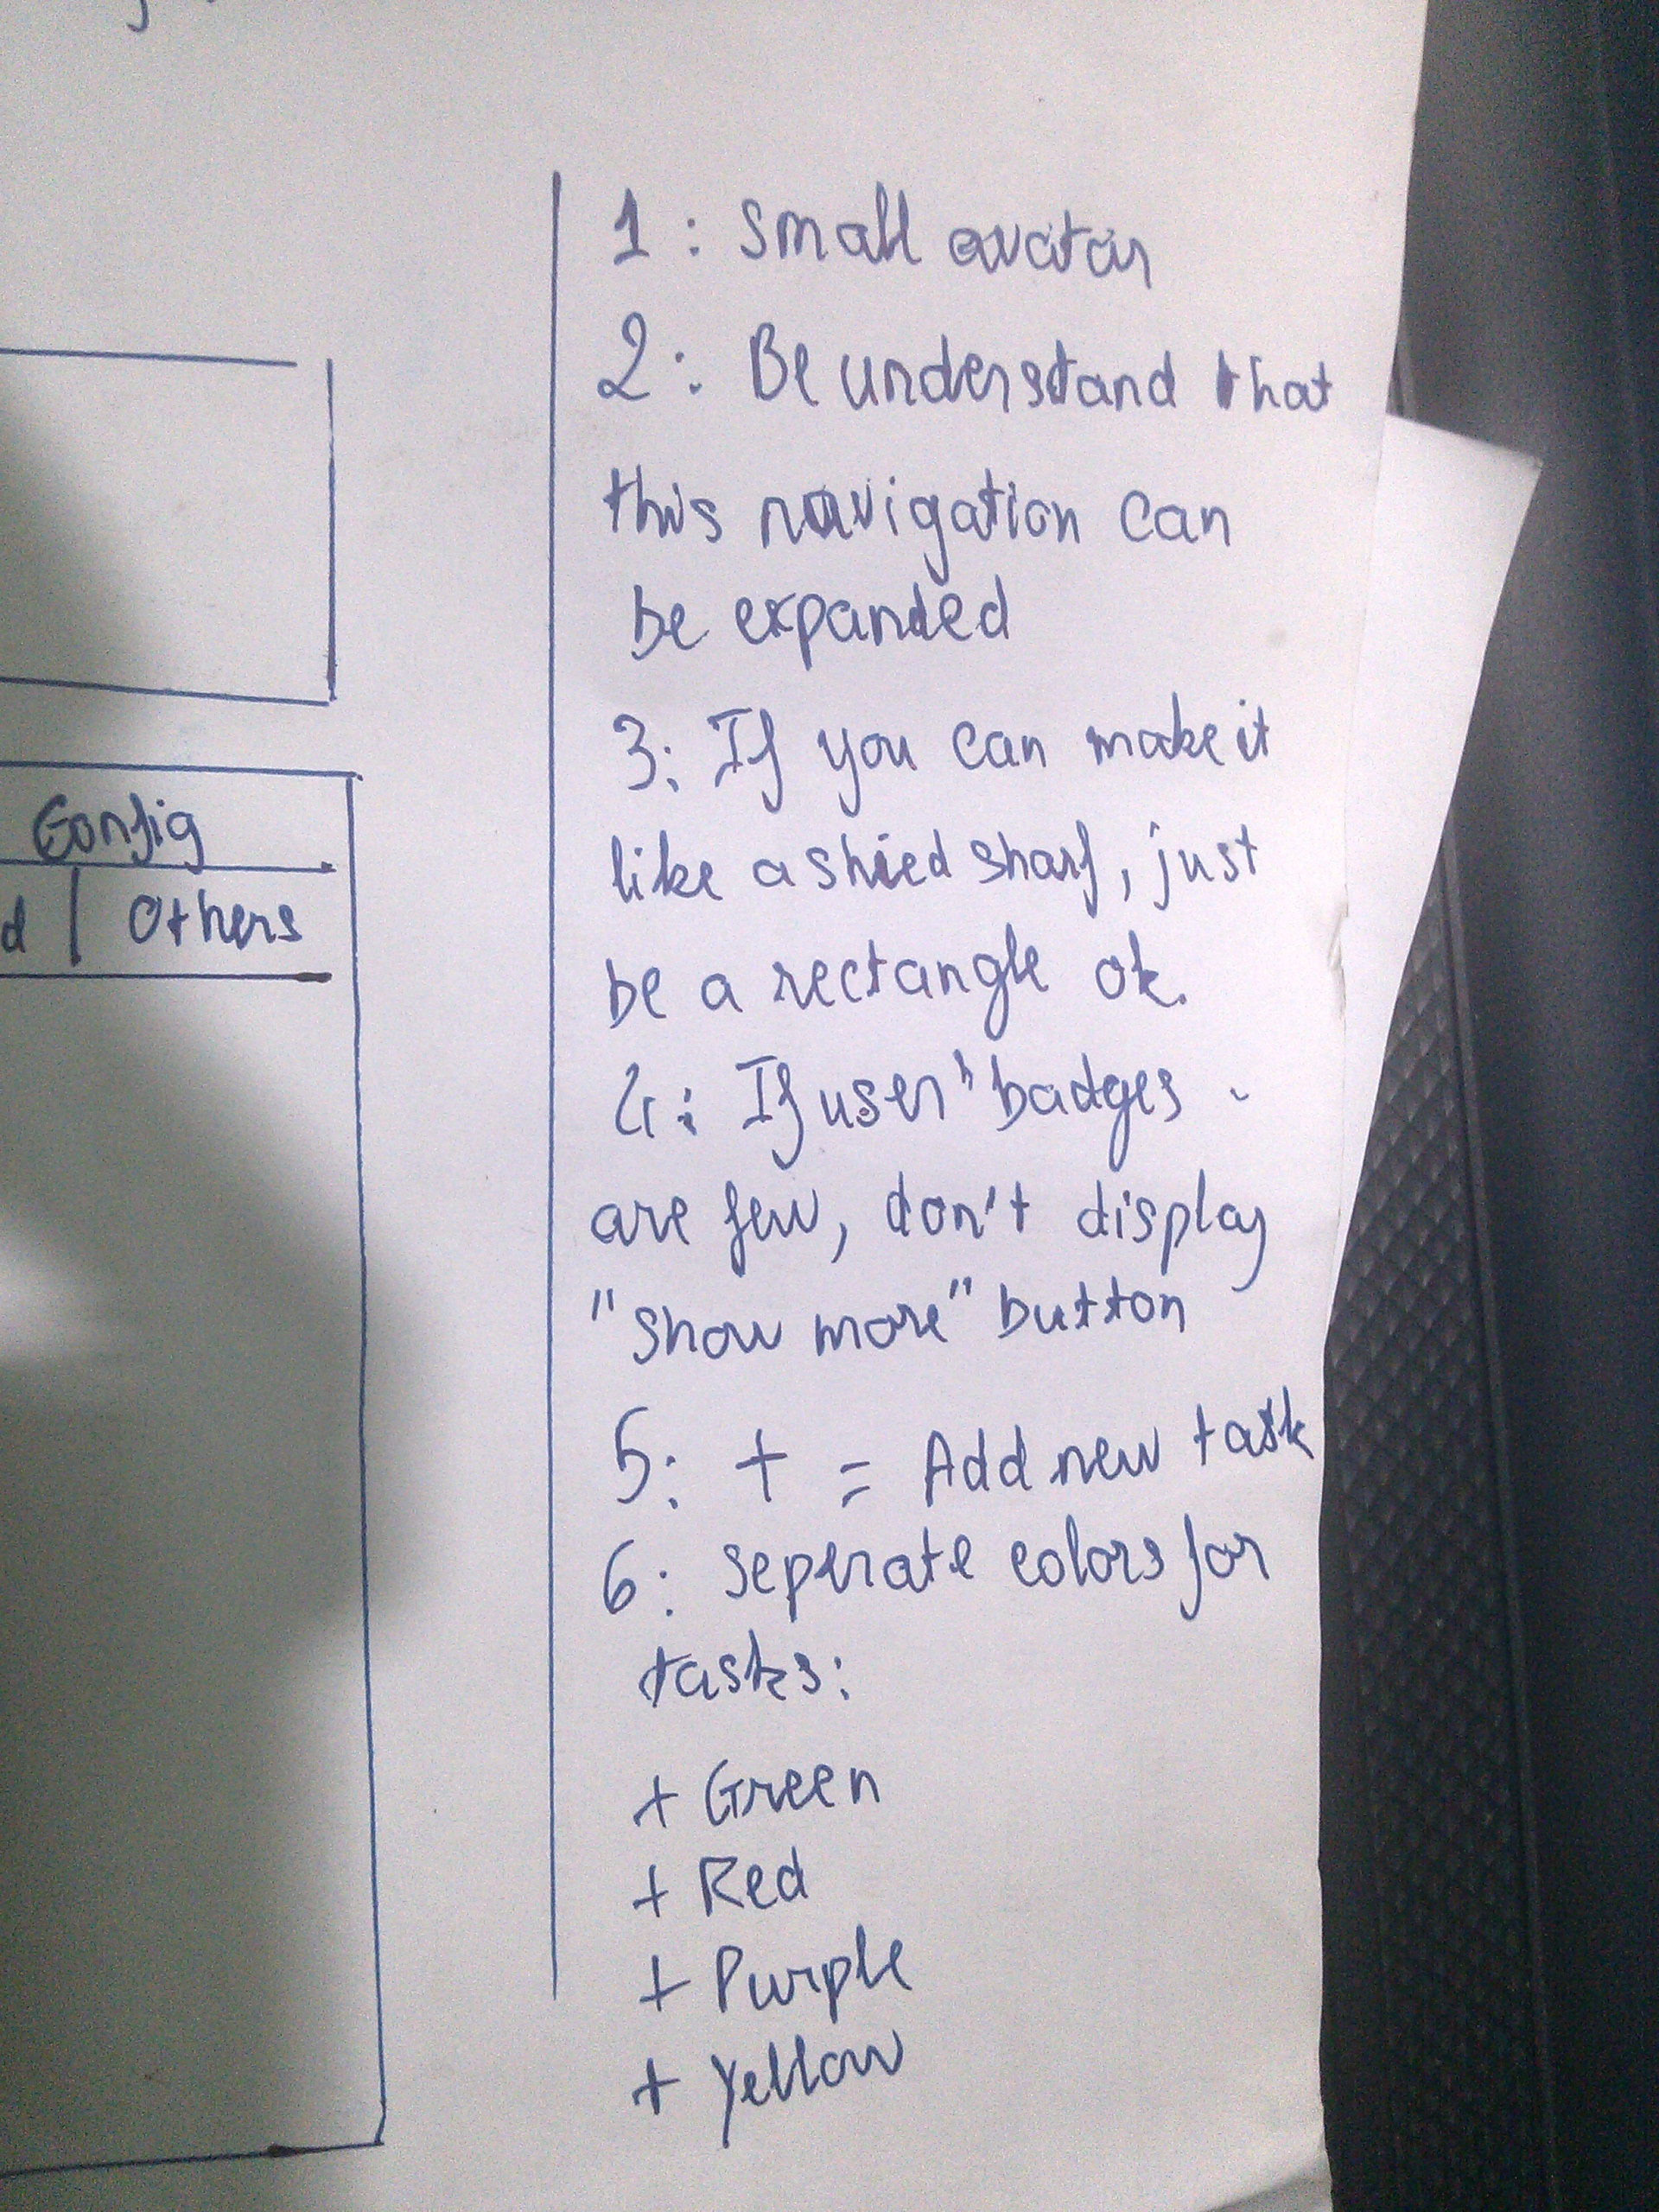 Config
d | Others
1 : Small avatar
2 : Be understand that
this navigation can
be expanded
3 : If you can make it
like a shied sharf, just
be a rectangle ok.
4 : If user' badges
are few, don't display
"Show more" button
5 : + = Add new task
6 : Seperate colors for
tasks :
+ Green
+ Red
+ Purple
+ Yellow